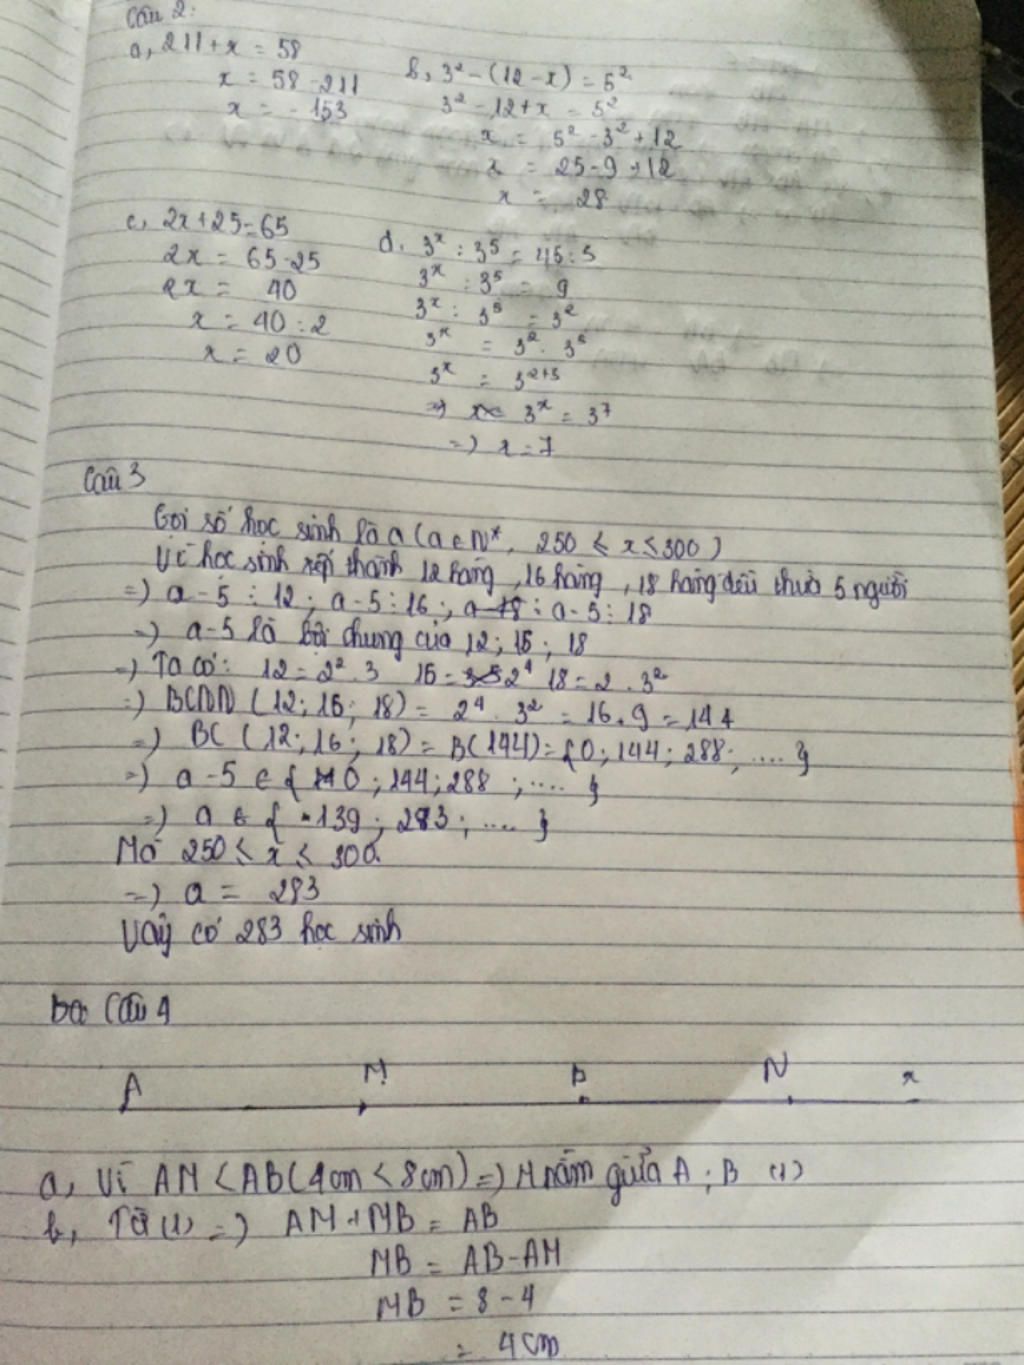 Câu 2:
a, 211 + x = 58
x = 58 - 211
x = - 153
b, 3² - (12 - x) = 5²
3² - 12 + x = 5²
x = 5² - 3² + 12
x = 25 - 9 + 12
x = 28
c, 2x + 25 = 65
2x = 65 - 25
2x = 40
x = 40 : 2
x = 20
d, 3ˣ : 3⁵ = 45 : 5
3ˣ : 3⁵ = 9
3ˣ : 3⁵ = 3²
3ˣ = 3² . 3⁵
3ˣ = 3²⁺⁵
=> 3ˣ = 3⁷
=> x = 7
Câu 3
Gọi số học sinh là a (a ∈ N*, 250 ≤ x ≤ 300)
Vì học sinh xếp thành 12 hàng, 16 hàng, 18 hàng đều thừa 5 người
=) a - 5 ⋮ 12 ; a - 5 ⋮ 16 ; a - 5 ⋮ 18
=) a - 5 là bội chung của 12 ; 16 ; 18
=) Ta có: 12 = 2² . 3 16 = 2⁴ 18 = 2 . 3²
=) BCNN (12; 16; 18) = 2⁴ . 3² = 16 . 9 = 144
=) BC (12; 16; 18) = B(144) = {0; 144; 288; .... }
=) a - 5 ∈ { 0 ; 144 ; 288 ; .... }
=) a ∈ { 139 ; 283 ; .... }
Mà 250 ≤ x ≤ 300
=) a = 283
Vậy có 283 học sinh
Câu 4
A M B N x
a, Vì AM < AB (4cm < 8cm) =) M nằm giữa A ; B (1)
b, Từ (1) =) AM + MB = AB
MB = AB - AM
MB = 8 - 4
= 4 cm